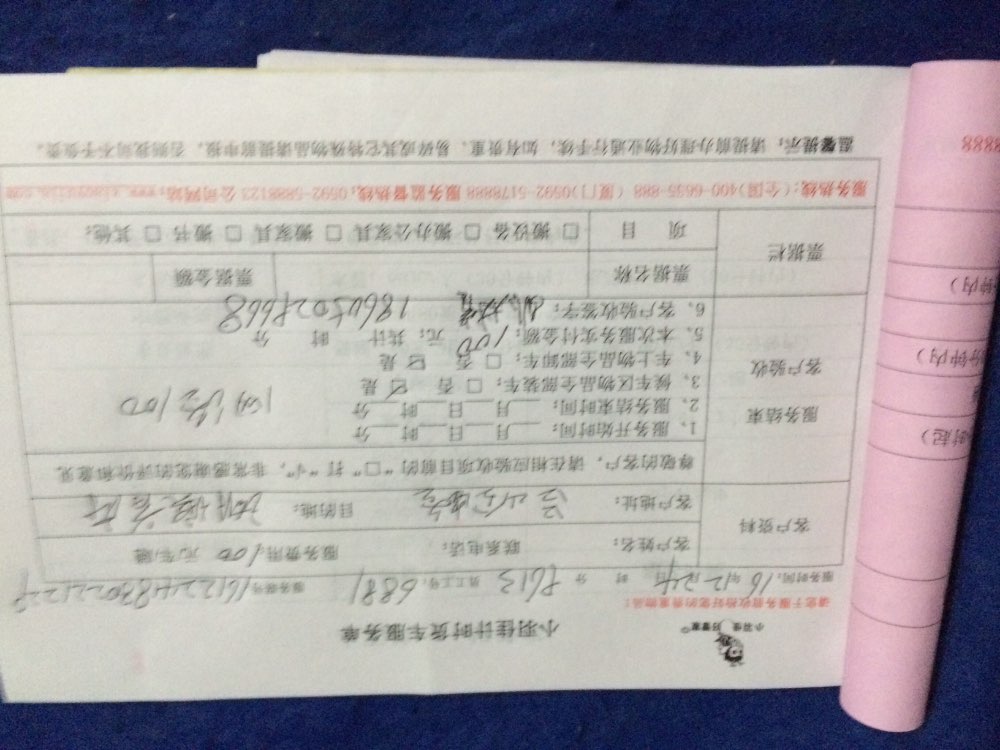 小羽佳 好管家
小羽佳计时货车服务单
请您于服务前收拾好您的贵重物品：
服务时间：16年12月24日 时 分 P613 员工工号：6881 服务编号：
客户资料
客户姓名： 联系电话： 服务费用100元/车趟
客户地址： 目的地：
服务结束
客户验收
尊敬的客户，请在相应验收项目前的“□”打“√”，非常感谢您的评价和意见
1、服务开始时间： 月 日 时 分
2、服务结束时间： 月 日 时 分
3、候车区物品全部装车：□ 否 ☑ 是
4、车上物品全部卸车：□ 否 ☑ 是
5、本次服务实付金额：100 元；共计 时 分
6、客户验收签字：
100
票据栏
票据名称 票据金额
项 目 □ 搬设备 □ 搬办公家具 □ 搬家具 □ 搬书 □ 其他：
服务热线：(全国)400-6655-888 (厦门)0592-5178888 服务监督热线：0592-5888123 公司网站：
温馨提示：请提前办理好物业通行手续，如有贵重、易碎或其它特殊物品请提前申报，否则我司不予负责。
8888
钟内）
分钟内）
时起）